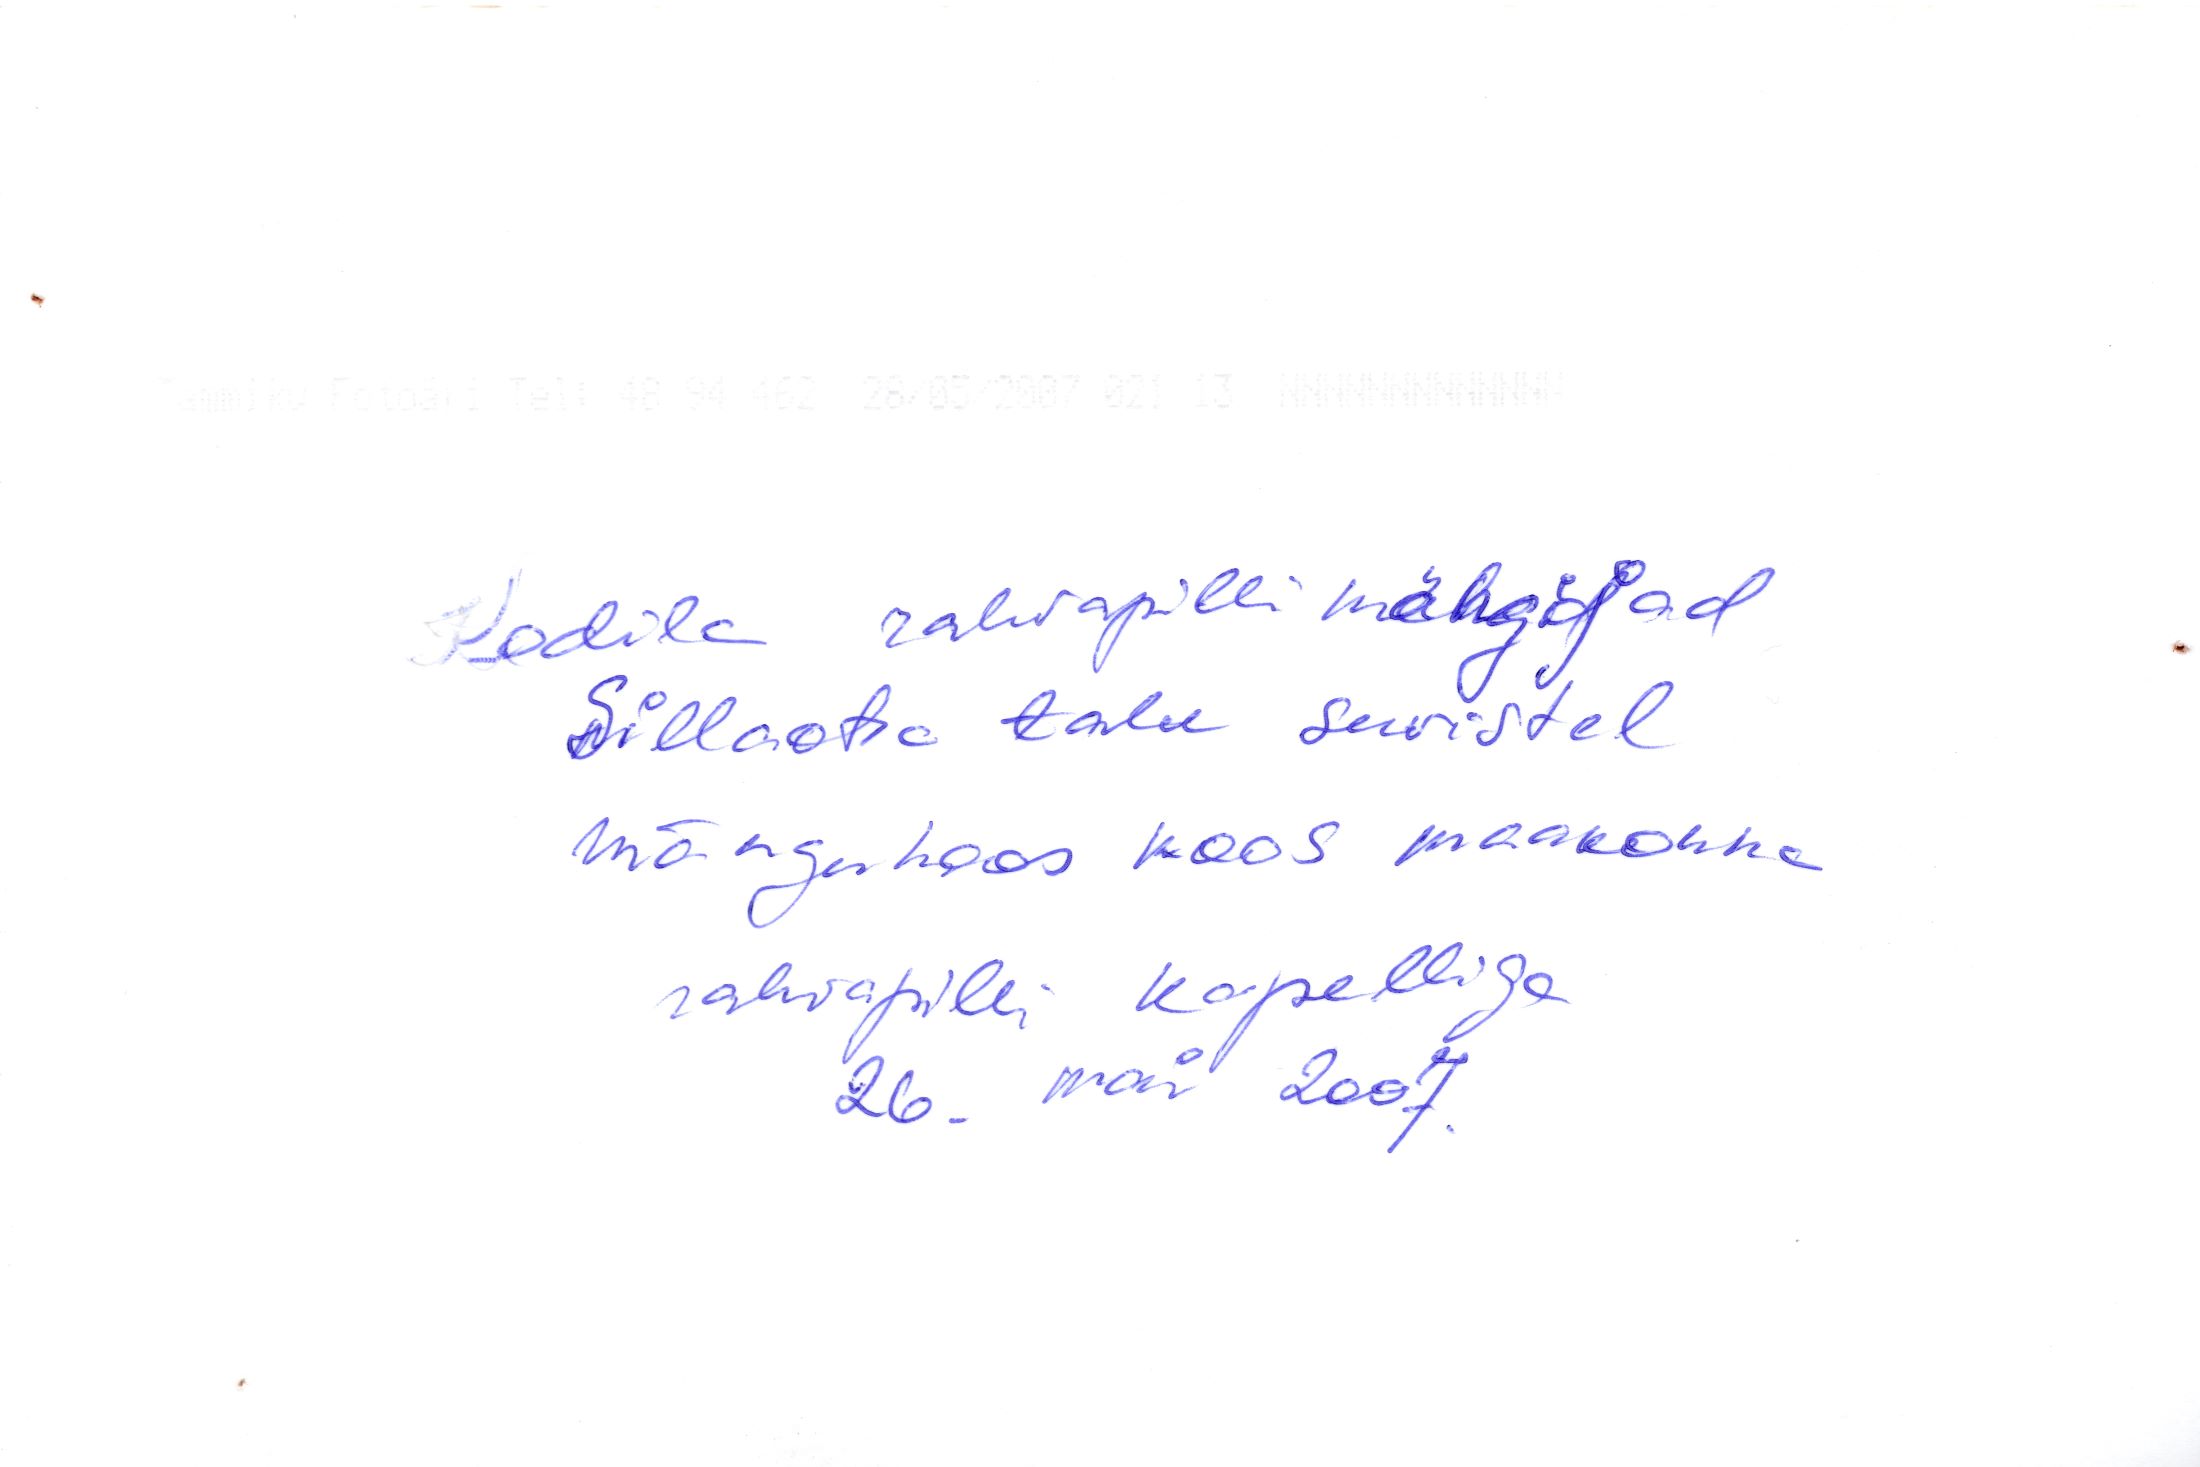 Tammiku Fotoäri Tel: 48 94 462 28/05/2007 021 13 NNNNNNNNNNNNN
Kodila rahvapilli mängijad
Sillaotsa talu suvistel
mänguhoos koos maakonna
rahvapilli kapelliga
26. mai 2007.